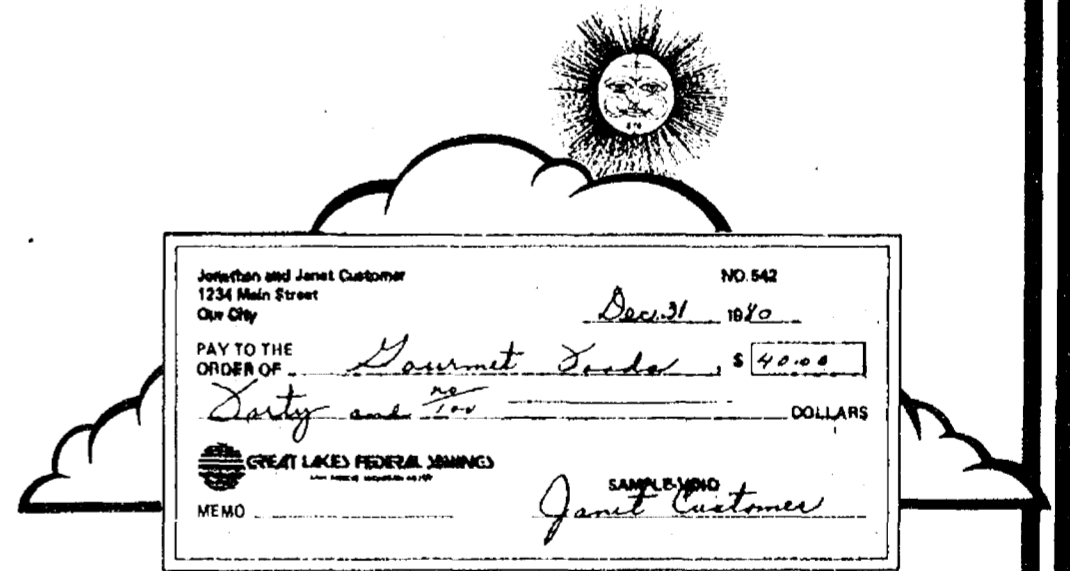 Jonathan and Janet Customer
NO. 542
1234 Main Street
Our City
Dec. 31 1980
PAY TO THE
ORDER OF Gourmet Foods, $ 40.00
Forty and no/100 DOLLARS
GREAT LAKES FEDERAL SAVINGS
SAMPLE-VOID
MEMO
Janet Customer